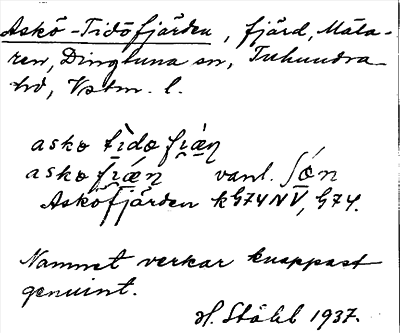 Askö-Tidöfjärden, fjärd, Mäla-
ren, Dingtuna sn, Tuhundra
hd, Vstm. l.
asko tìdo fiæ̣n
asko fiǽn vanl. ʃón
Asköfjärden k G74 NV, G74.
Namnet verkar knappast
genuint.
H. Ståhl 1937.